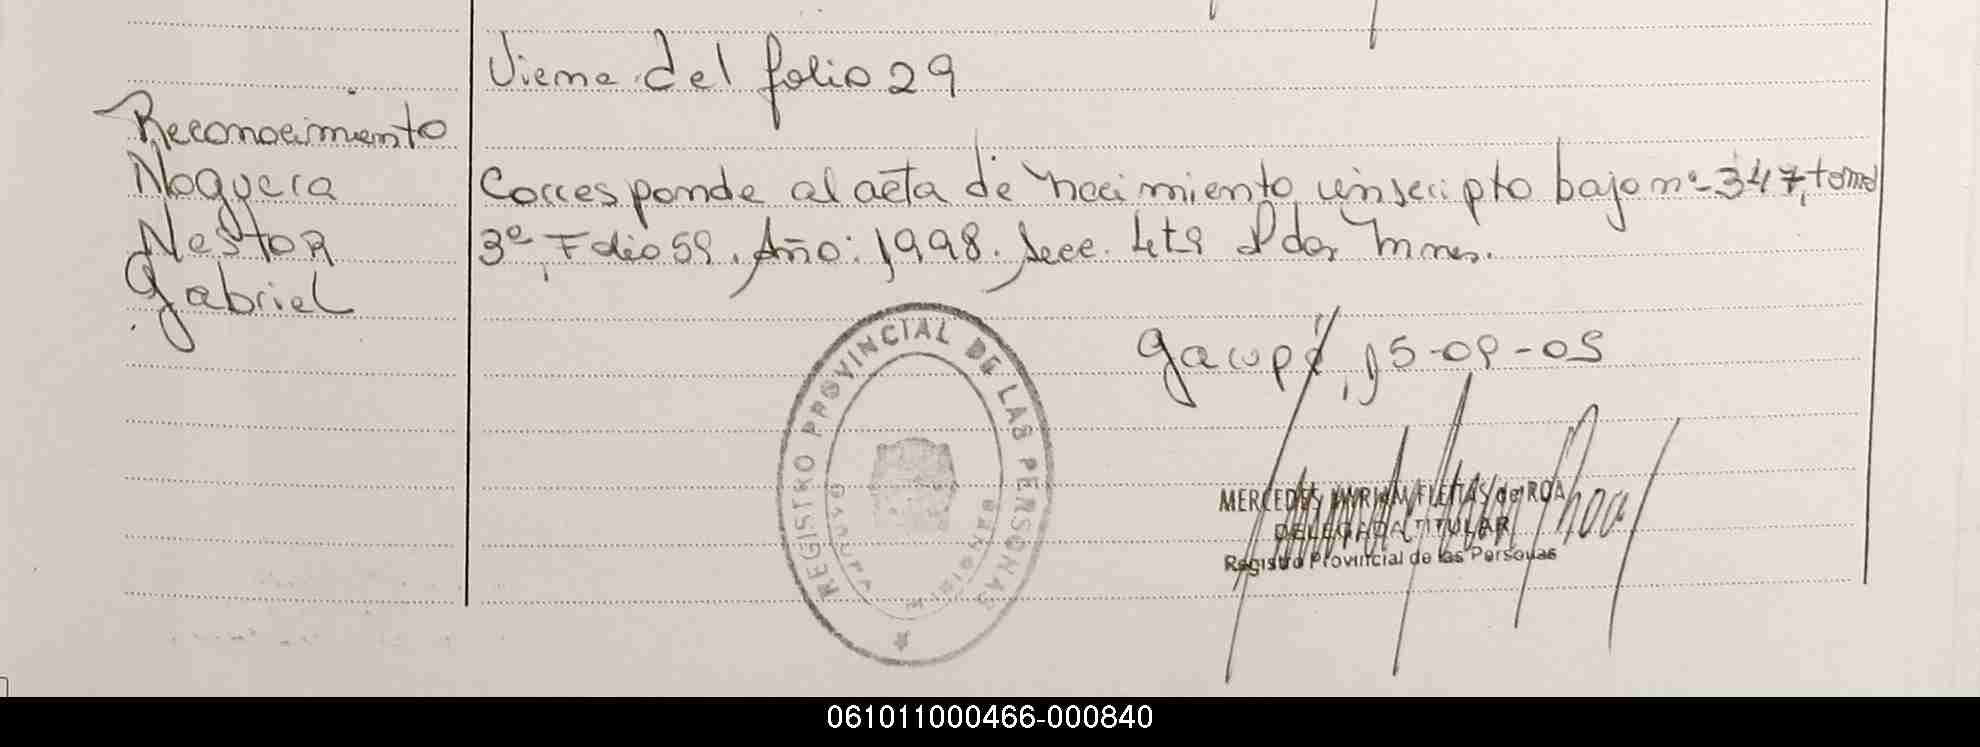 Viene del folio 29
Reconocimiento
Noguera
Nestor
Gabriel
Corresponde al acta de nacimiento inscripto bajo nº 347, tomo
3º, Folio 59. Año: 1998. Secc. 4ta Pdas Mnes.
Garupá, 15-09-05
REGISTRO PROVINCIAL DE LAS PERSONAS
MISIONES
MERCEDES MYRIAM FLEITAS de ROA
DELEGADA TITULAR
Registro Provincial de las Personas
061011000466-000840